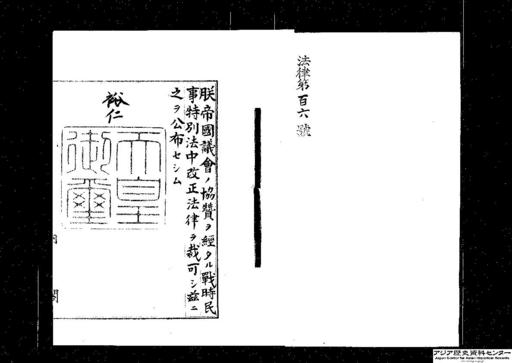 法律第百六號
朕帝國議會ノ協贊ヲ經タル戰時民
事特別法中改正法律ヲ裁可シ茲ニ
之ヲ公布セシム
裕仁
天皇
御璽
閣
アジア歴史資料センター
Japan Center for Asian Historical Records